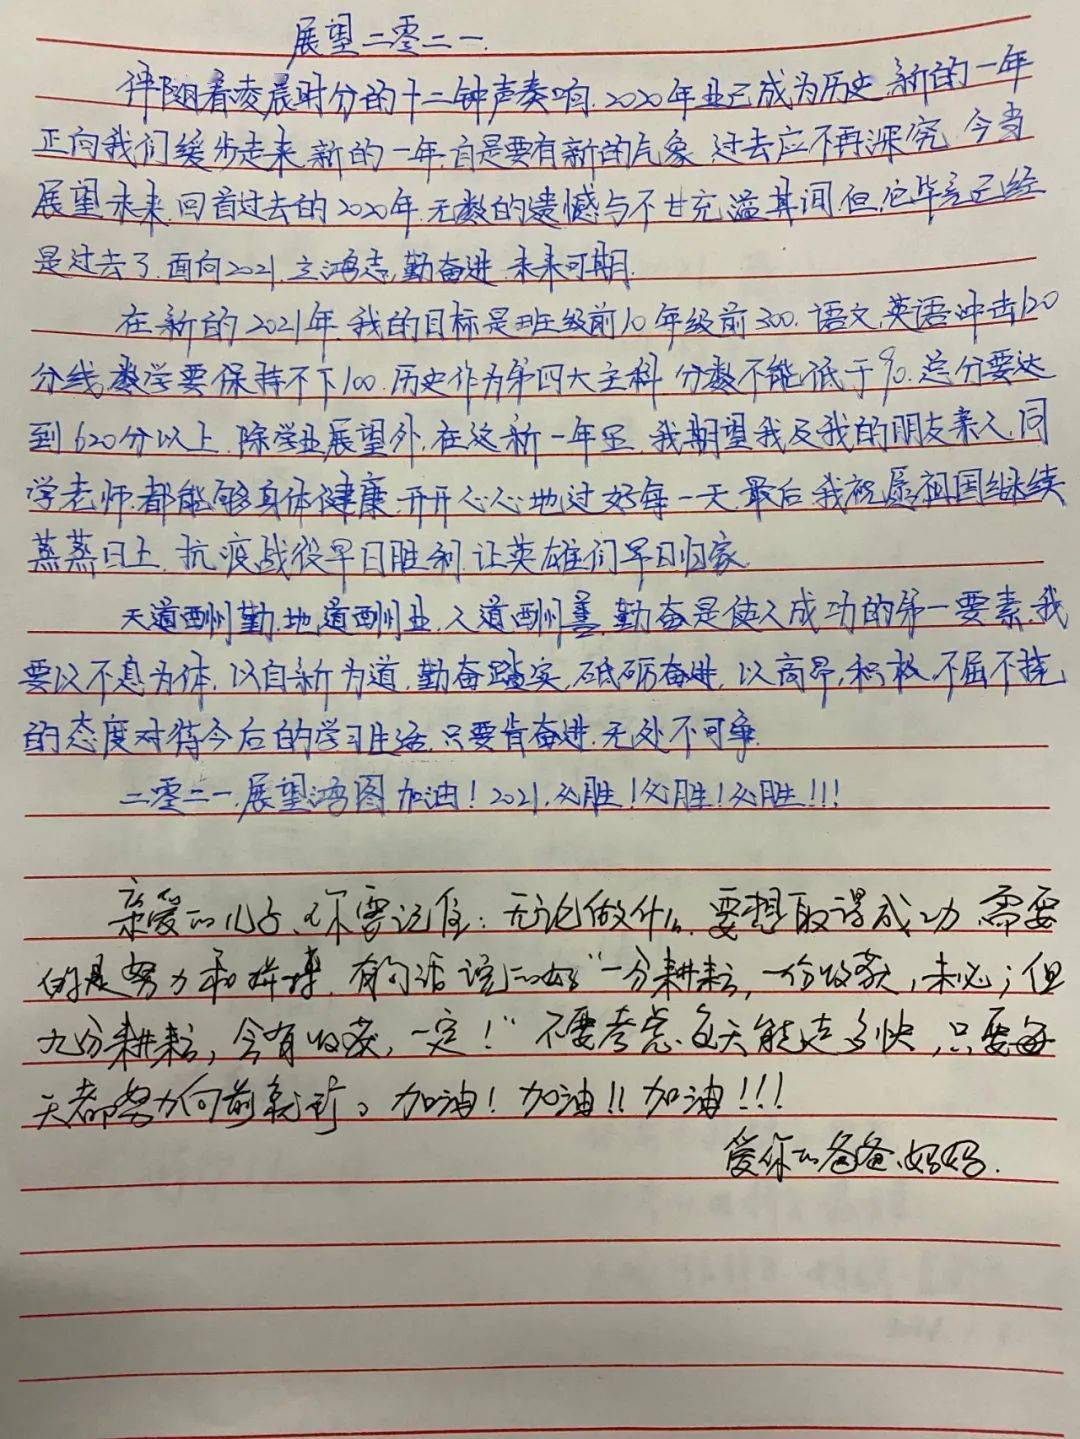 展望二零二一
伴随着凌晨时分的十二钟声奏响,2020年业已成为历史,新的一年
正向我们缓步走来,新的一年,自是要有新的气象,过去应不再深究,今当
展望未来,回首过去的2020年,无数的遗憾与不甘充溢其间,但它毕竟已经
是过去了,面向2021,立鸿志,勤奋进,未来可期.
在新的2021年,我的目标是班级前10年级前300.语文,英语冲击120
分线,数学要保持不下100.历史作为第四大主科,分数不能低于90.总分要达
到620分以上.除学业展望外,在这新一年里,我期望我及我的朋友亲人,同
学老师,都能够身体健康,开开心心地过好每一天.最后,我祝愿祖国继续
蒸蒸日上,抗疫战役早日胜利,让英雄们早日归家.
天道酬勤,地道酬业,人道酬善,勤奋是使人成功的第一要素.我
要以不息为体,以自新为道,勤奋踏实,砥砺奋进,以高昂,积极,不屈不挠
的态度对待今后的学习生活,只要肯奋进,无处不可争.
二零二一,展望鸿图,加油!2021,必胜!必胜!必胜!!!
亲爱的儿子、你要记住:无论做什么,要想取得成功,需要
的是努力和拼搏,有句话说的好"一分耕耘,一份收获,未必;但
九分耕耘,会有收获,一定!"不要考虑每天能走多快,只要每
天都努力向前就行。加油!加油!!加油!!!
爱你的爸爸、妈妈.